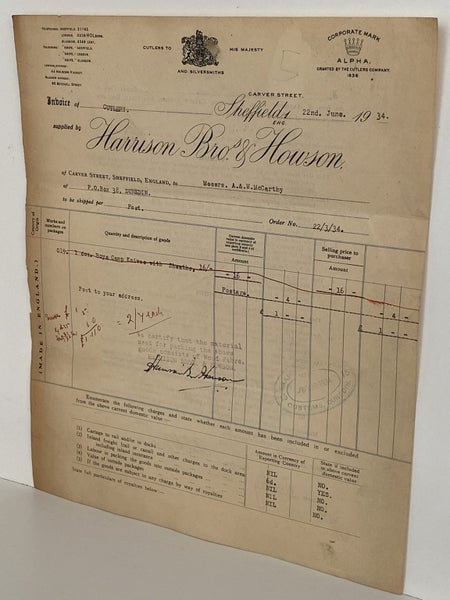 TELEPHONES: SHEFFIELD, 21162
CUTLERS TO HIS MAJESTY
AND SILVERSMITHS
CORPORATE MARK
ALPHA.
GRANTED BY THE CUTLERS COMPANY.
1836
CARVER STREET,
Invoice of CUTLERY. Sheffield, 22nd. June. 1934.
ENG.
supplied by Harrison Bros & Howson,
of CARVER STREET, SHEFFIELD, ENGLAND, to Messrs. A.&W.McCarthy
of P.O.Box 38, DUNEDIN.
to be shipped per Post. Order No. 22/3/34.
Country of Origin
Marks and numbers on packages
Quantity and description of goods
Amount
Selling price to purchaser
Amount
(MADE IN ENGLAND.)
1 doz. Boys Camp Knives with Sheaths, 16/- - 16 - - 16 -
Postage. - 4 - - 4 -
£ 1 - - £ 1 - -
Post to your address.
= 2/ each
to certify that the material
used for packing the above
goods consists of Wood Fibre.
Harrison Bros & Howson
Enumerate the following charges and state whether each amount has been included in or excluded
from the above current domestic value:
Amount in Currency of Exporting Country
State if included in above current domestic value
(1) Cartage to rail and/or to docks NIL NO.
(2) Inland freight (rail or canal) and other charges to the dock area including inland insurance 6d. YES.
(3) Labour in packing the goods into outside packages NIL NO.
(4) Value of outside packages NIL NO.
(5) If the goods are subject to any charge by way of royalties NIL NO.
State full particulars of royalties below: